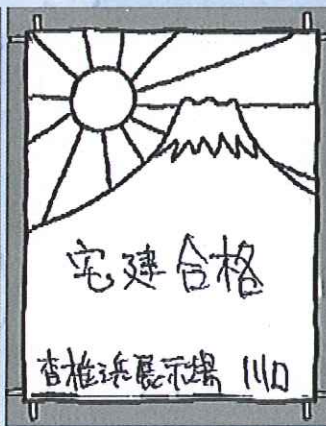 宅建合格
香椎浜展示場 川口